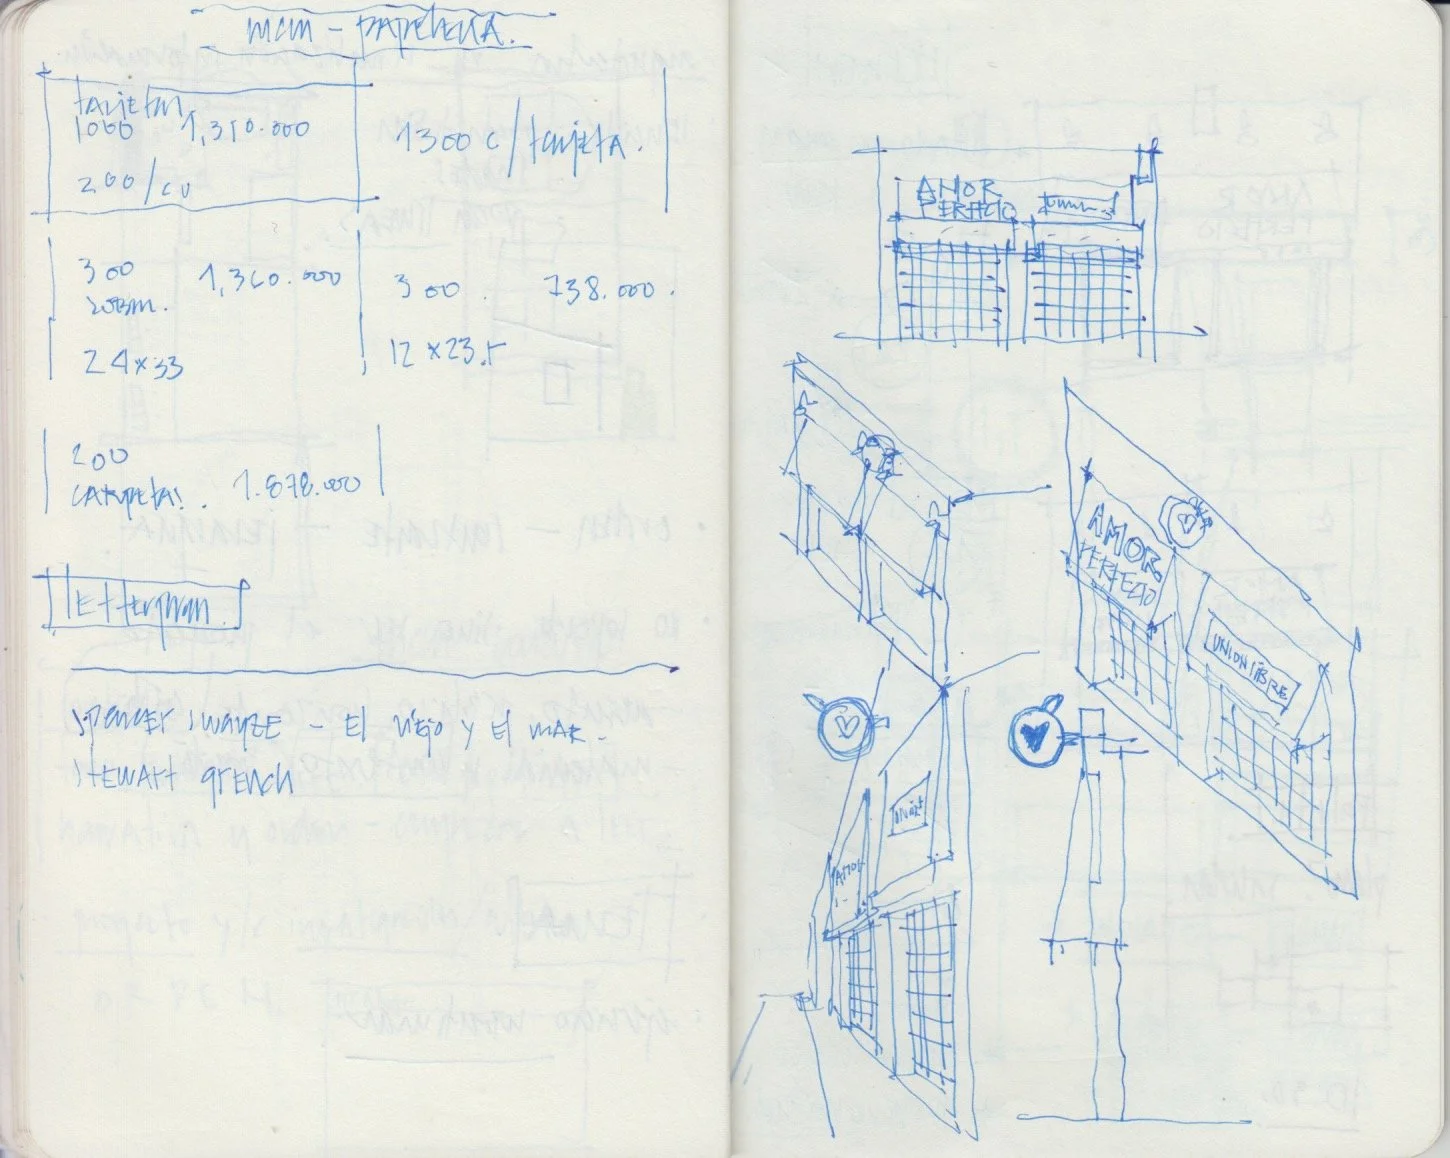 MCM - PAPELERIA.
tarjetas
1000 1,310.000
200/cu
1300 c/tarjeta.
300 1,360.000
sobres.
24 x 33
300. 738.000.
12 x 23.5
200
carpetas. 1.878.000
Letterpress.
Spencer swayze - El viejo y El mar.
Stewart grench
AMOR
PERFECTO
AMOR
PERFECTO
UNION LIBRE
AMOR